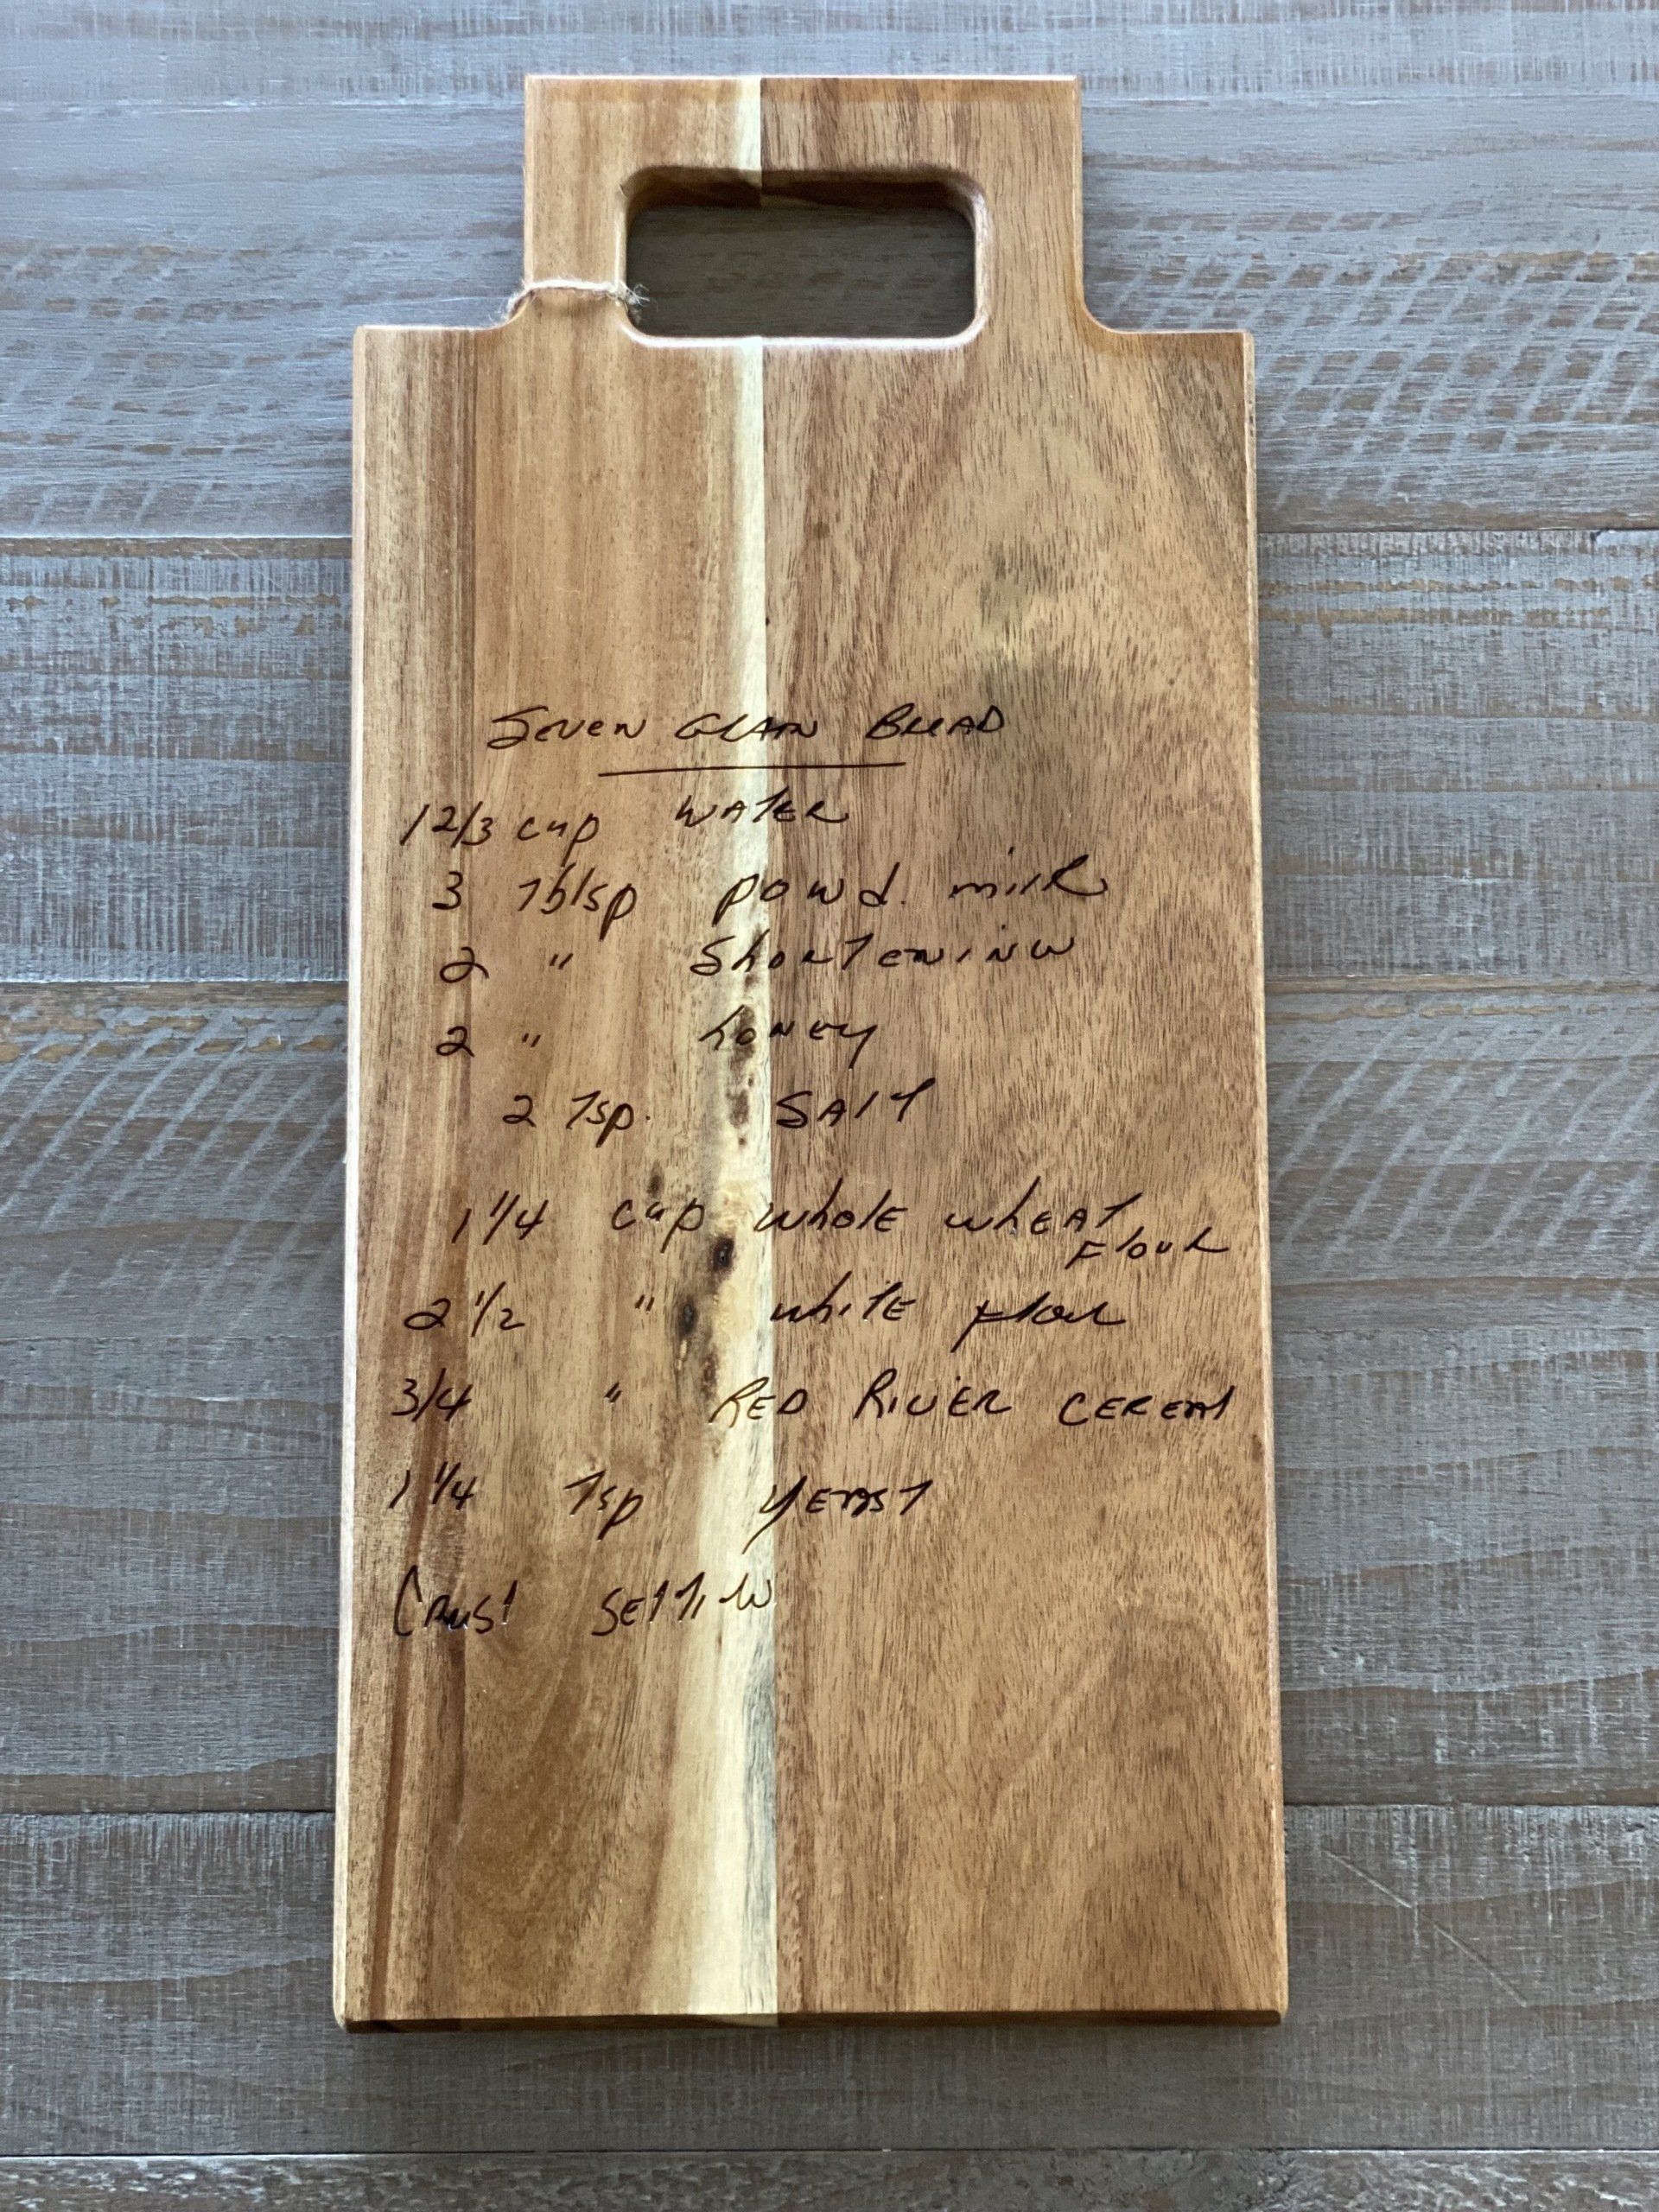 Seven Grain Bread
1 2/3 cup water
3 Tblsp powd. milk
2 " Shortening
2 " honey
2 Tsp. Salt
1 1/4 cup whole wheat
flour
2 1/2 " white flour
3/4 " Red River Cereal
1 1/4 Tsp yeast
Crust setting